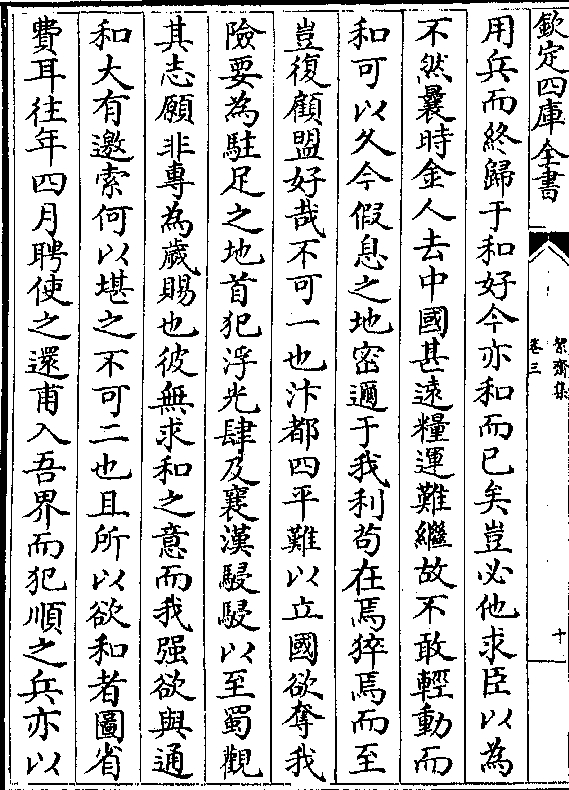 欽定四庫全書
絜齋集
卷三
十
用兵而終歸于和好今亦和而已矣豈必他求臣以為
不然曩時金人去中國甚逺糧運難繼故不敢輕動而
和可以久今假息之地密邇于我利茍在焉猝焉而至
豈復顧盟好哉不可一也汴都四平難以立國欲奪我
險要為駐足之地首犯浮光肆及襄漢駸駸以至蜀觀
其志願非專為歲賜也彼無求和之意而我强欲與通
和大有邀索何以堪之不可二也且所以欲和者圖省
費耳往年四月聘使之還甫入吾界而犯順之兵亦以